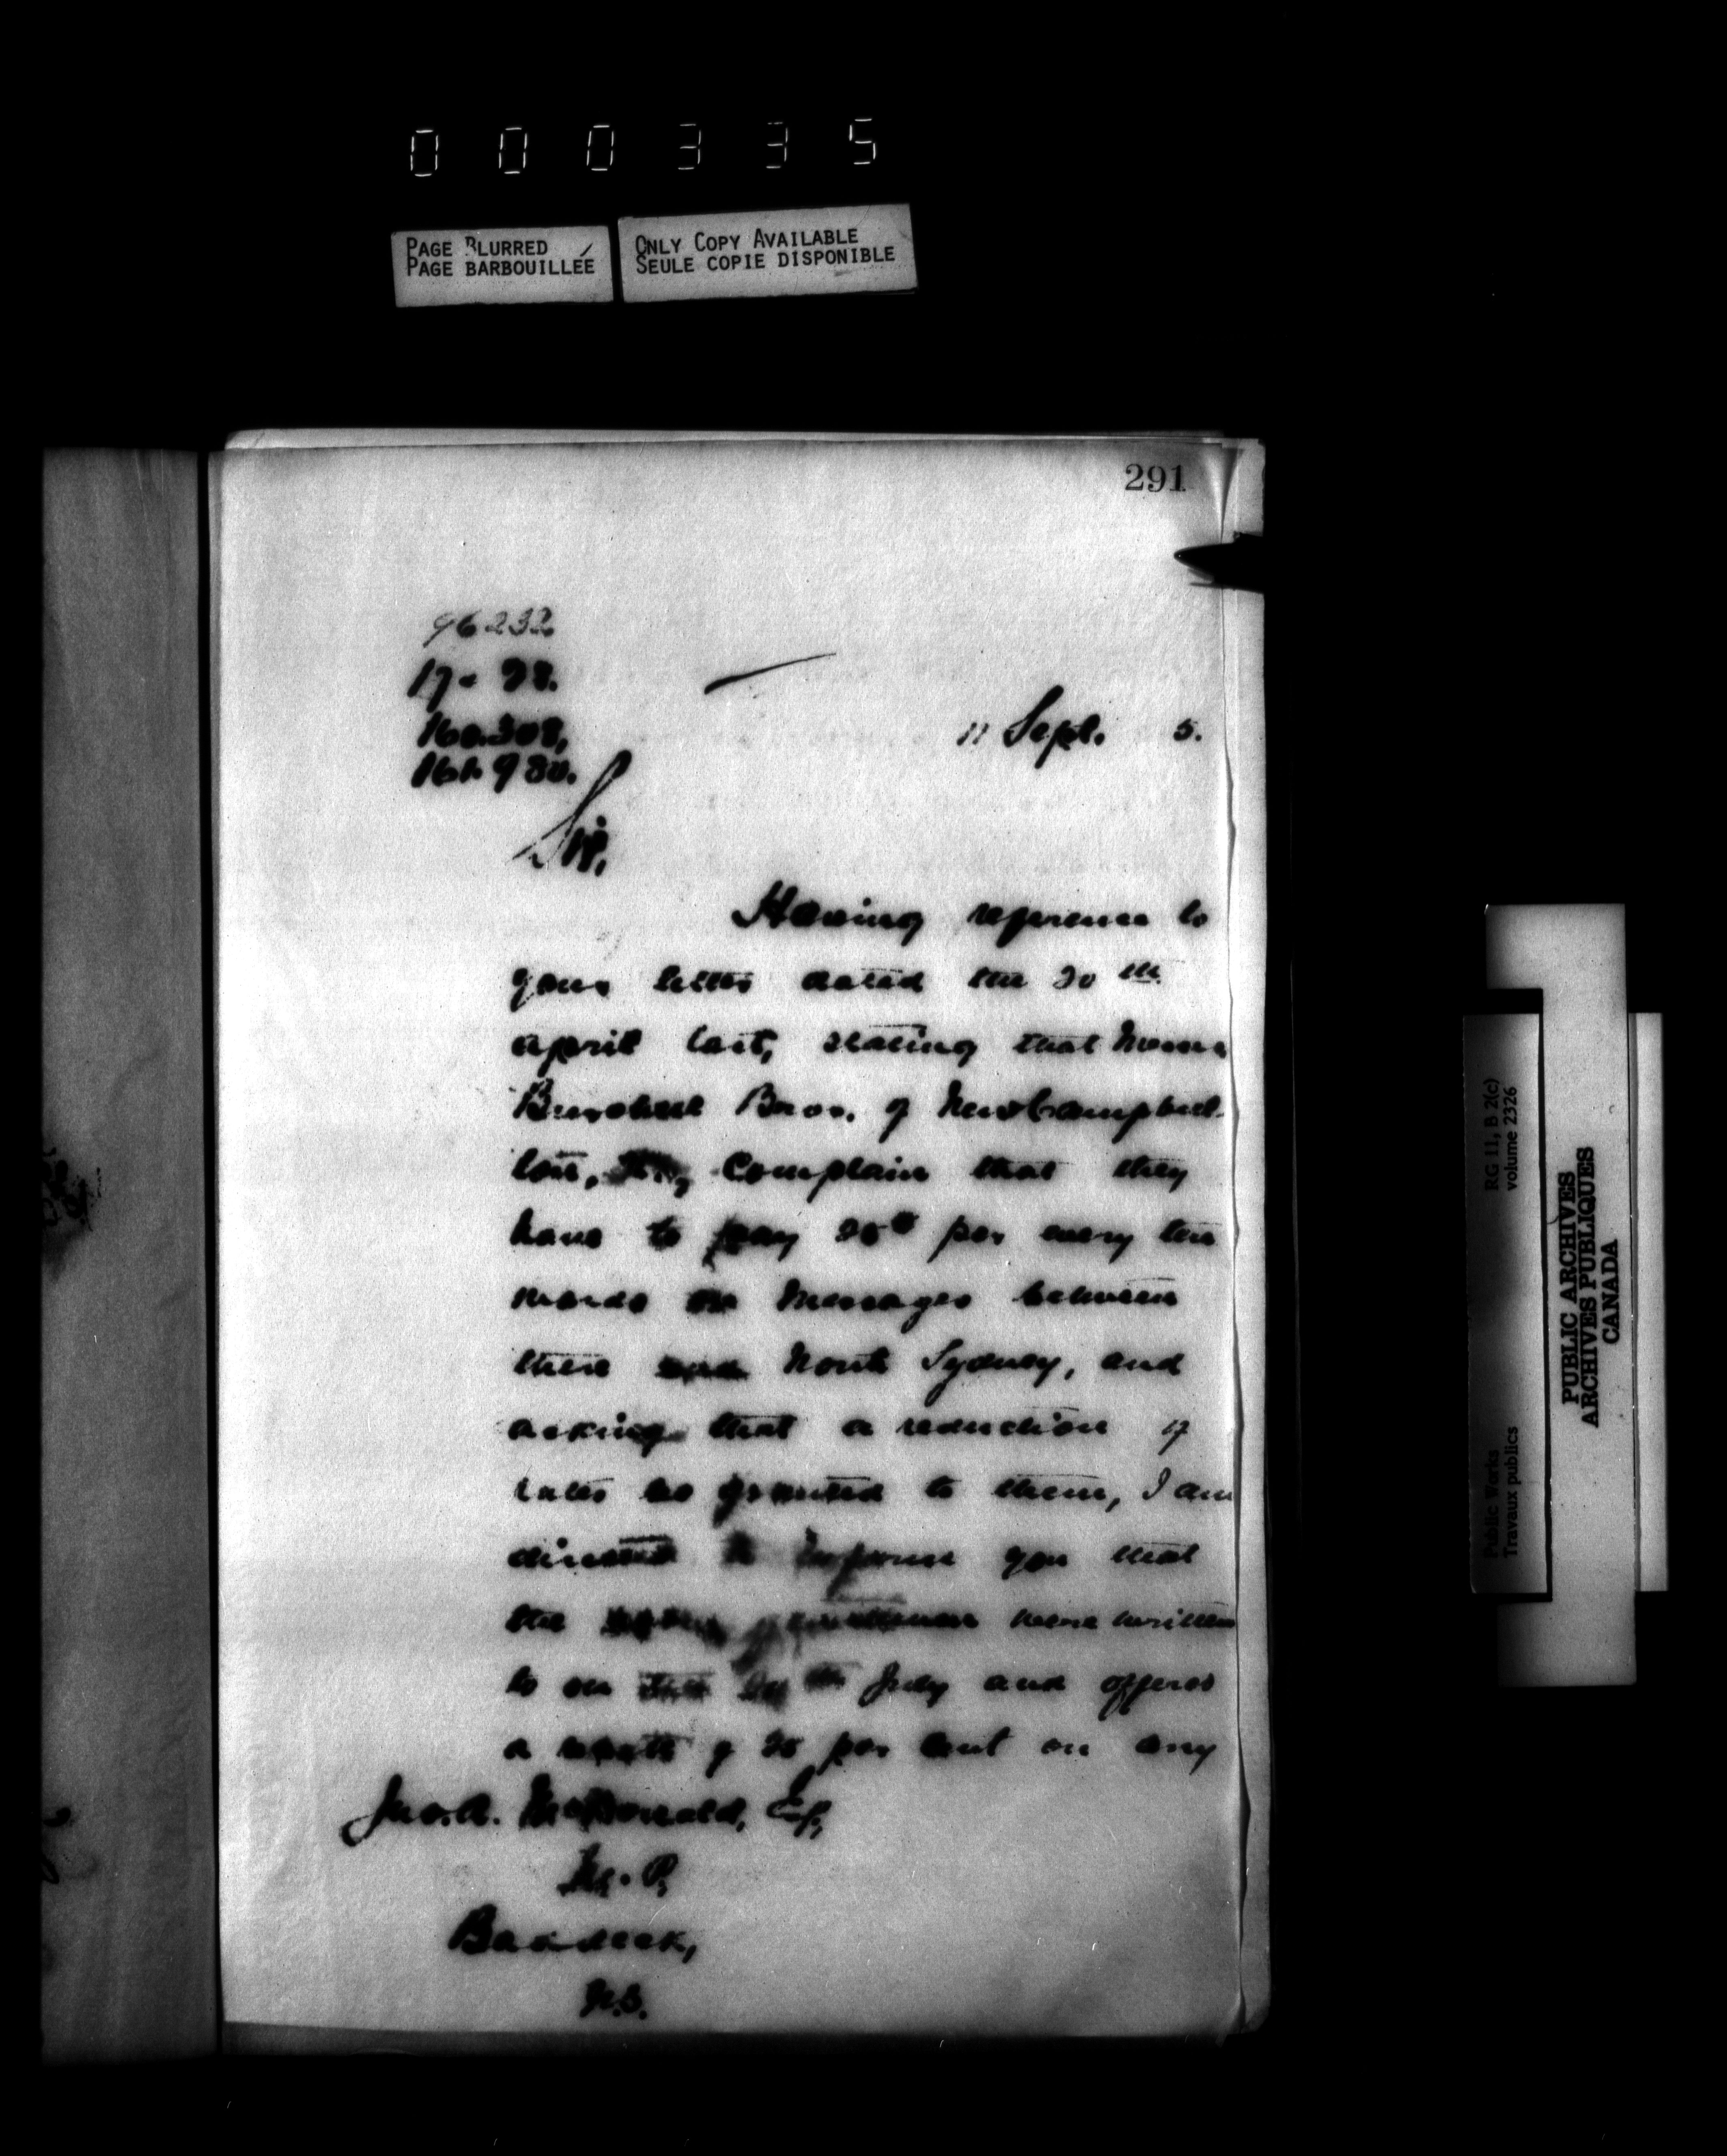 000335
PAGE BLURRED
PAGE BARBOUILLÉE
ONLY COPY AVAILABLE
SEULE COPIE DISPONIBLE
291
96232
160.308,
161.980.
11 Sept. 5.
Sir,
Having reference to
your letter dated the
April last, stating that
Bros. of New Campbell-
ton, complain that they
have to pay per every ten
words on messages between
there and North Sydney, and
asking that a reduction of
rates be granted to them, I am
directed to inform you that
the gentlemen were written
to on the July and offered
a rebate of per cent on any
Jno. A. McDonald, Esq,
M.P,
Baddeck,
N.S.
RG 11, B 2(c)
volume 2326
Public Works
Travaux publics
PUBLIC ARCHIVES
ARCHIVES PUBLIQUES
CANADA